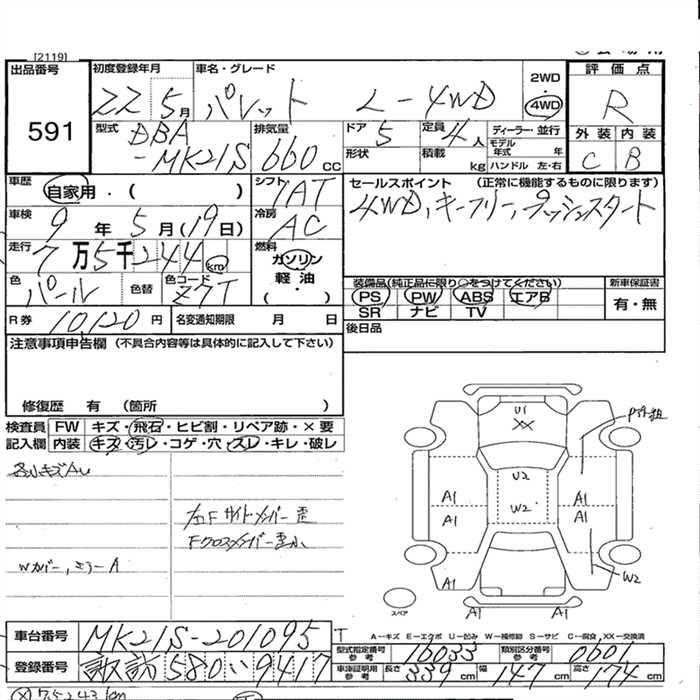 [2119]
出品番号 591
初度登録年月 22 5月
車名・グレード パレット L-4WD
2WD
・
4WD
評価点
R
外装 内装
C B
型式 DBA
-MK21S
排気量 660 CC
ドア 5
定員 4人
形状
積載 kg
ディーラー・並行
モデル年式 年
ハンドル 左・右
車歴 自家用・( )
シフト 1AT
セールスポイント (正常に機能するものに限ります)
4WD、キーフリー、プッシュスタート
車検 9年 5月(19日)
冷房 AC
走行 7万5千244km
燃料 ガソリン
軽油
( ・ )
色 パール
色替
色コード Z7T
装備品(純正品に限り○をつけてください)
PS PW ABS エアB
SR ナビ TV
新車保証書
有・無
R券 10,120円
名変通知期限 月 日
後日品
注意事項申告欄 (不具合内容等は具体的に記入して下さい)
修復歴 有 (箇所 )
検査員 FW キズ・飛石・ヒビ割・リペア跡・×要
記入欄 内装 キズ・汚レ・コゲ・穴・スレ・キレ・破レ
各小キズAU
左F サイドメンバー歪
Fクロスメンバー歪小
Wカバー、ミラーA
U1
XX
U2
W2
A1
A1
A1
A1
A1
W2
A1
A1
スペア
A-キズ E-エクボ U-凹み W-補修跡 S-サビ C-腐食、XX-交換済
車台番号 MK21S-201095
型式指定番号 参考 16033
類別区分番号 参考 0601
登録番号 諏訪 580 い 9417
車検証明用 参考 長さ 339cm 幅 147cm 高さ 174cm